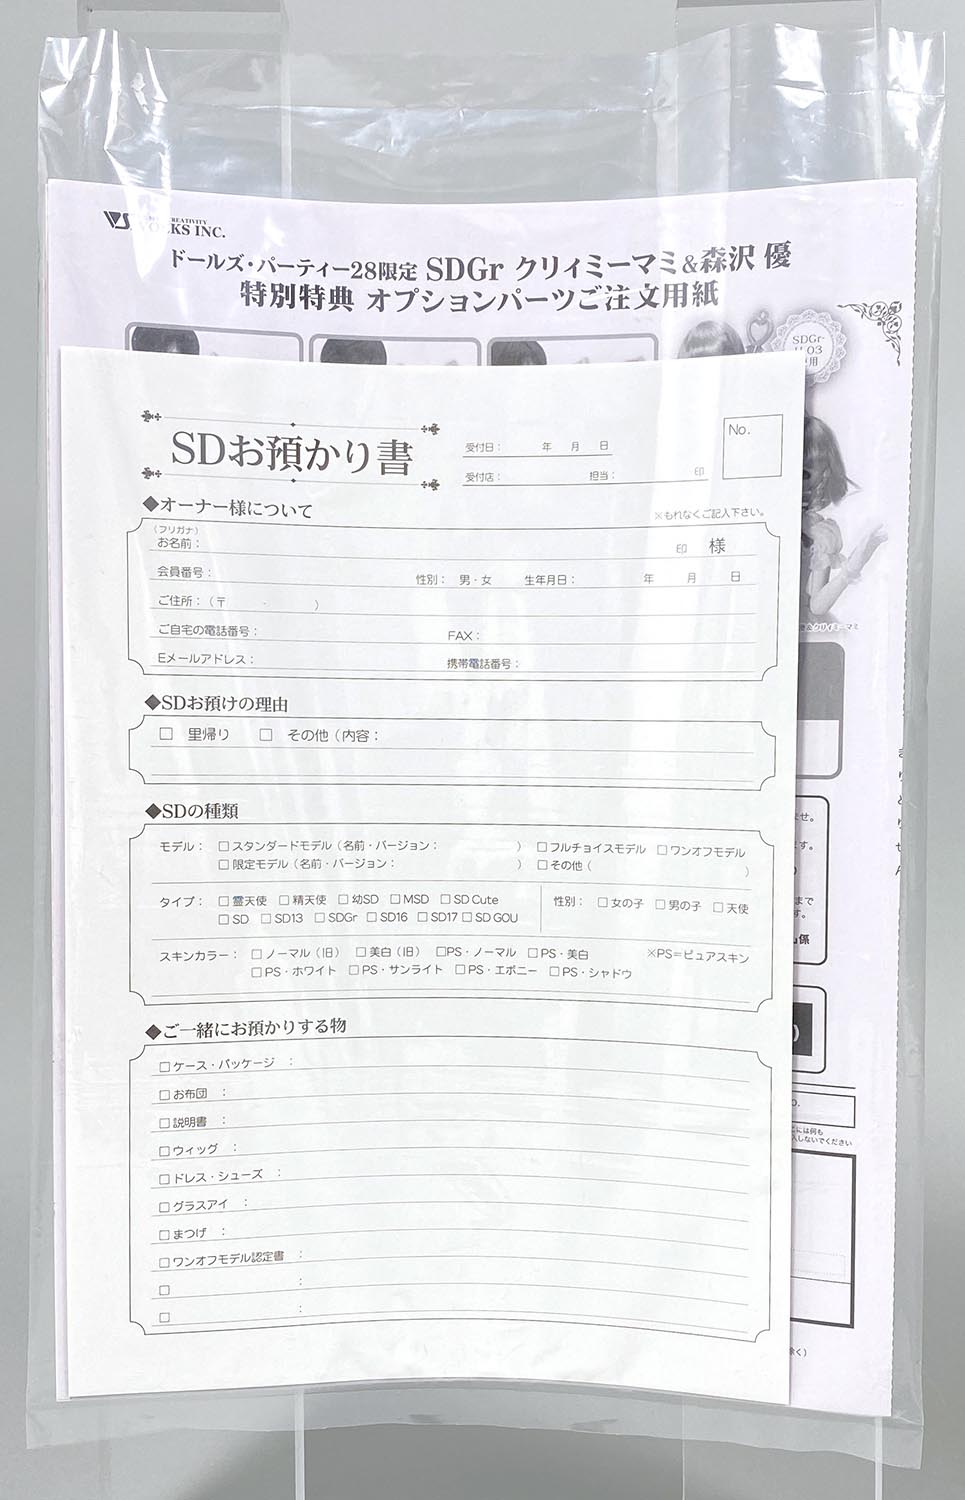 VOLKS INC.
ドールズ・パーティー28限定 SDGr クリィミーマミ&森沢 優
特別特典 オプションパーツご注文用紙
SDGr-
03
用
&クリィミーマミ
SDお預かり書
受付日： 年 月 日
受付店： 担当： 印
No.
◆オーナー様について
※もれなくご記入下さい。
(フリガナ)
お名前： 印 様
会員番号： 性別： 男・女 生年月日： 年 月 日
ご住所：(〒 - )
ご自宅の電話番号： FAX：
Eメールアドレス： 携帯電話番号：
◆SDお預けの理由
□ 里帰り □ その他（内容：
◆SDの種類
モデル： □スタンダードモデル（名前・バージョン： ） □フルチョイスモデル □ワンオフモデル
□限定モデル（名前・バージョン： ） □その他（ ）
タイプ： □霊天使 □精天使 □幼SD □MSD □SD Cute
□SD □SD13 □SDGr □SD16 □SD17 □SD GOU
性別： □女の子 □男の子 □天使
スキンカラー： □ノーマル（旧） □美白（旧） □PS・ノーマル □PS・美白 ※PS=ピュアスキン
□PS・ホワイト □PS・サンライト □PS・エボニー □PS・シャドウ
◆ご一緒にお預かりする物
□ケース・パッケージ ：
□お布団 ：
□説明書 ：
□ウィッグ ：
□ドレス・シューズ ：
□グラスアイ ：
□まつげ ：
□ワンオフモデル認定書 ：
□ ：
□ ：
せ。
す。
まで
す。
係
には何も
入しないでください
除く）